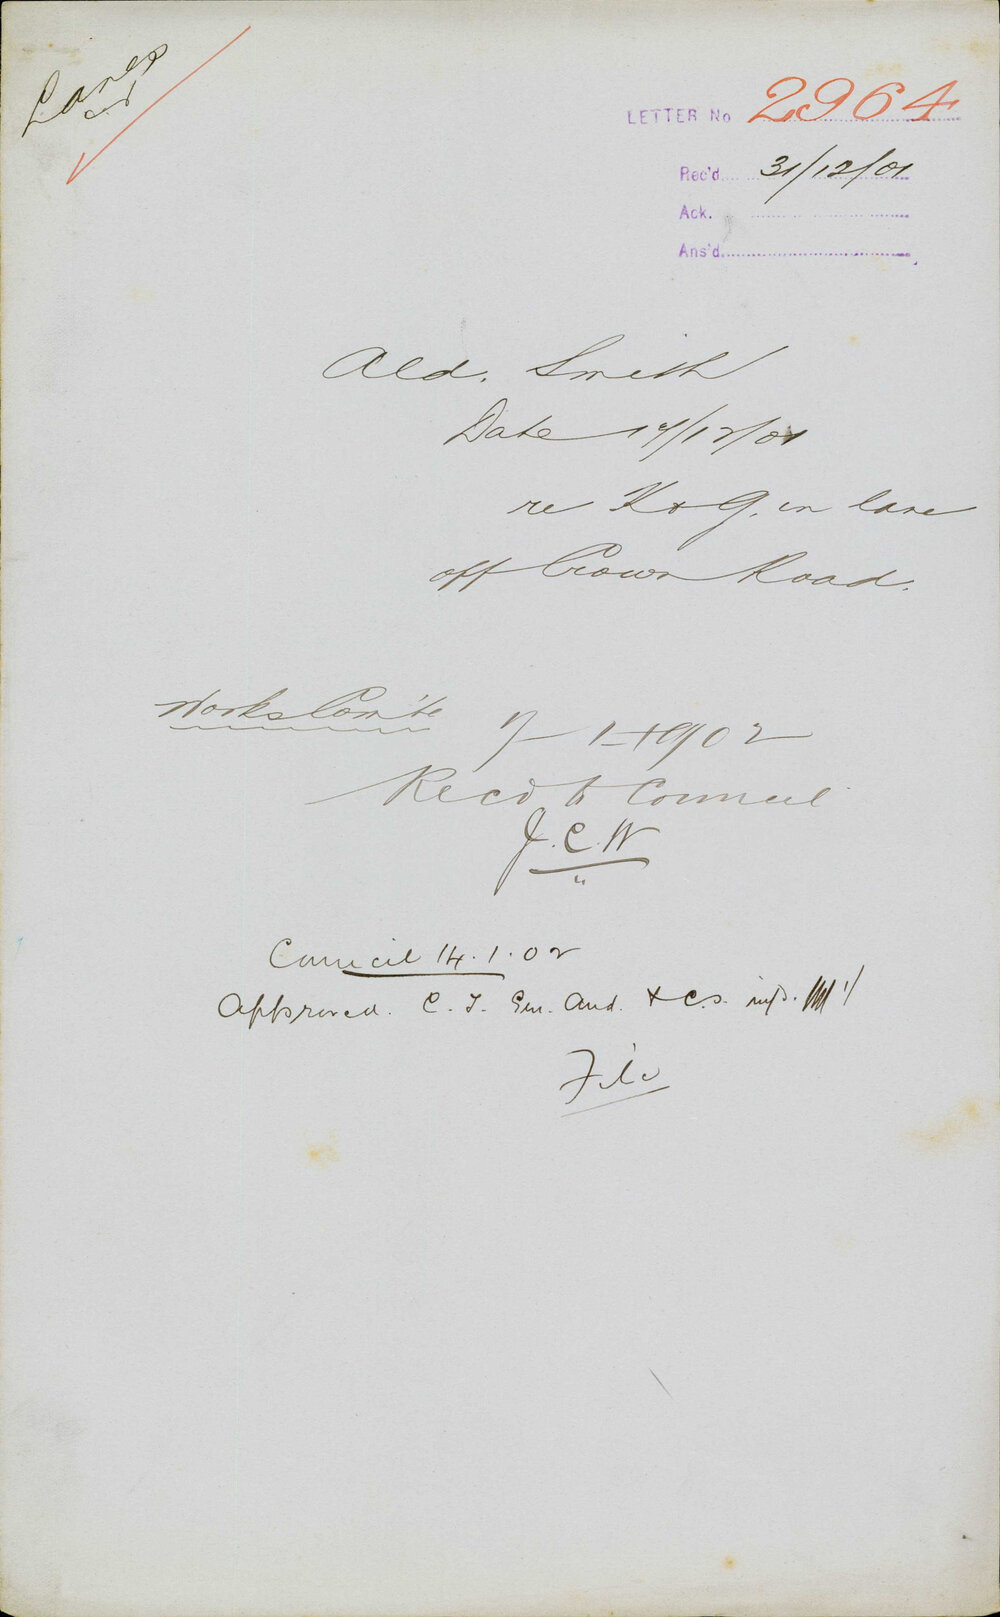 Lanes
LETTER No 2964
Rec'd 31/12/01
Ack.
Ans'd
Ald. Smith
Date 17/12/01
re K & G. in lane
off Crown Road.
Works Com'te 7-1-1902
Rec'd to Council
J.C.W
Council 14.1.02
Approved. C. T. Gen. Aud. & C.S. inf'd.
File